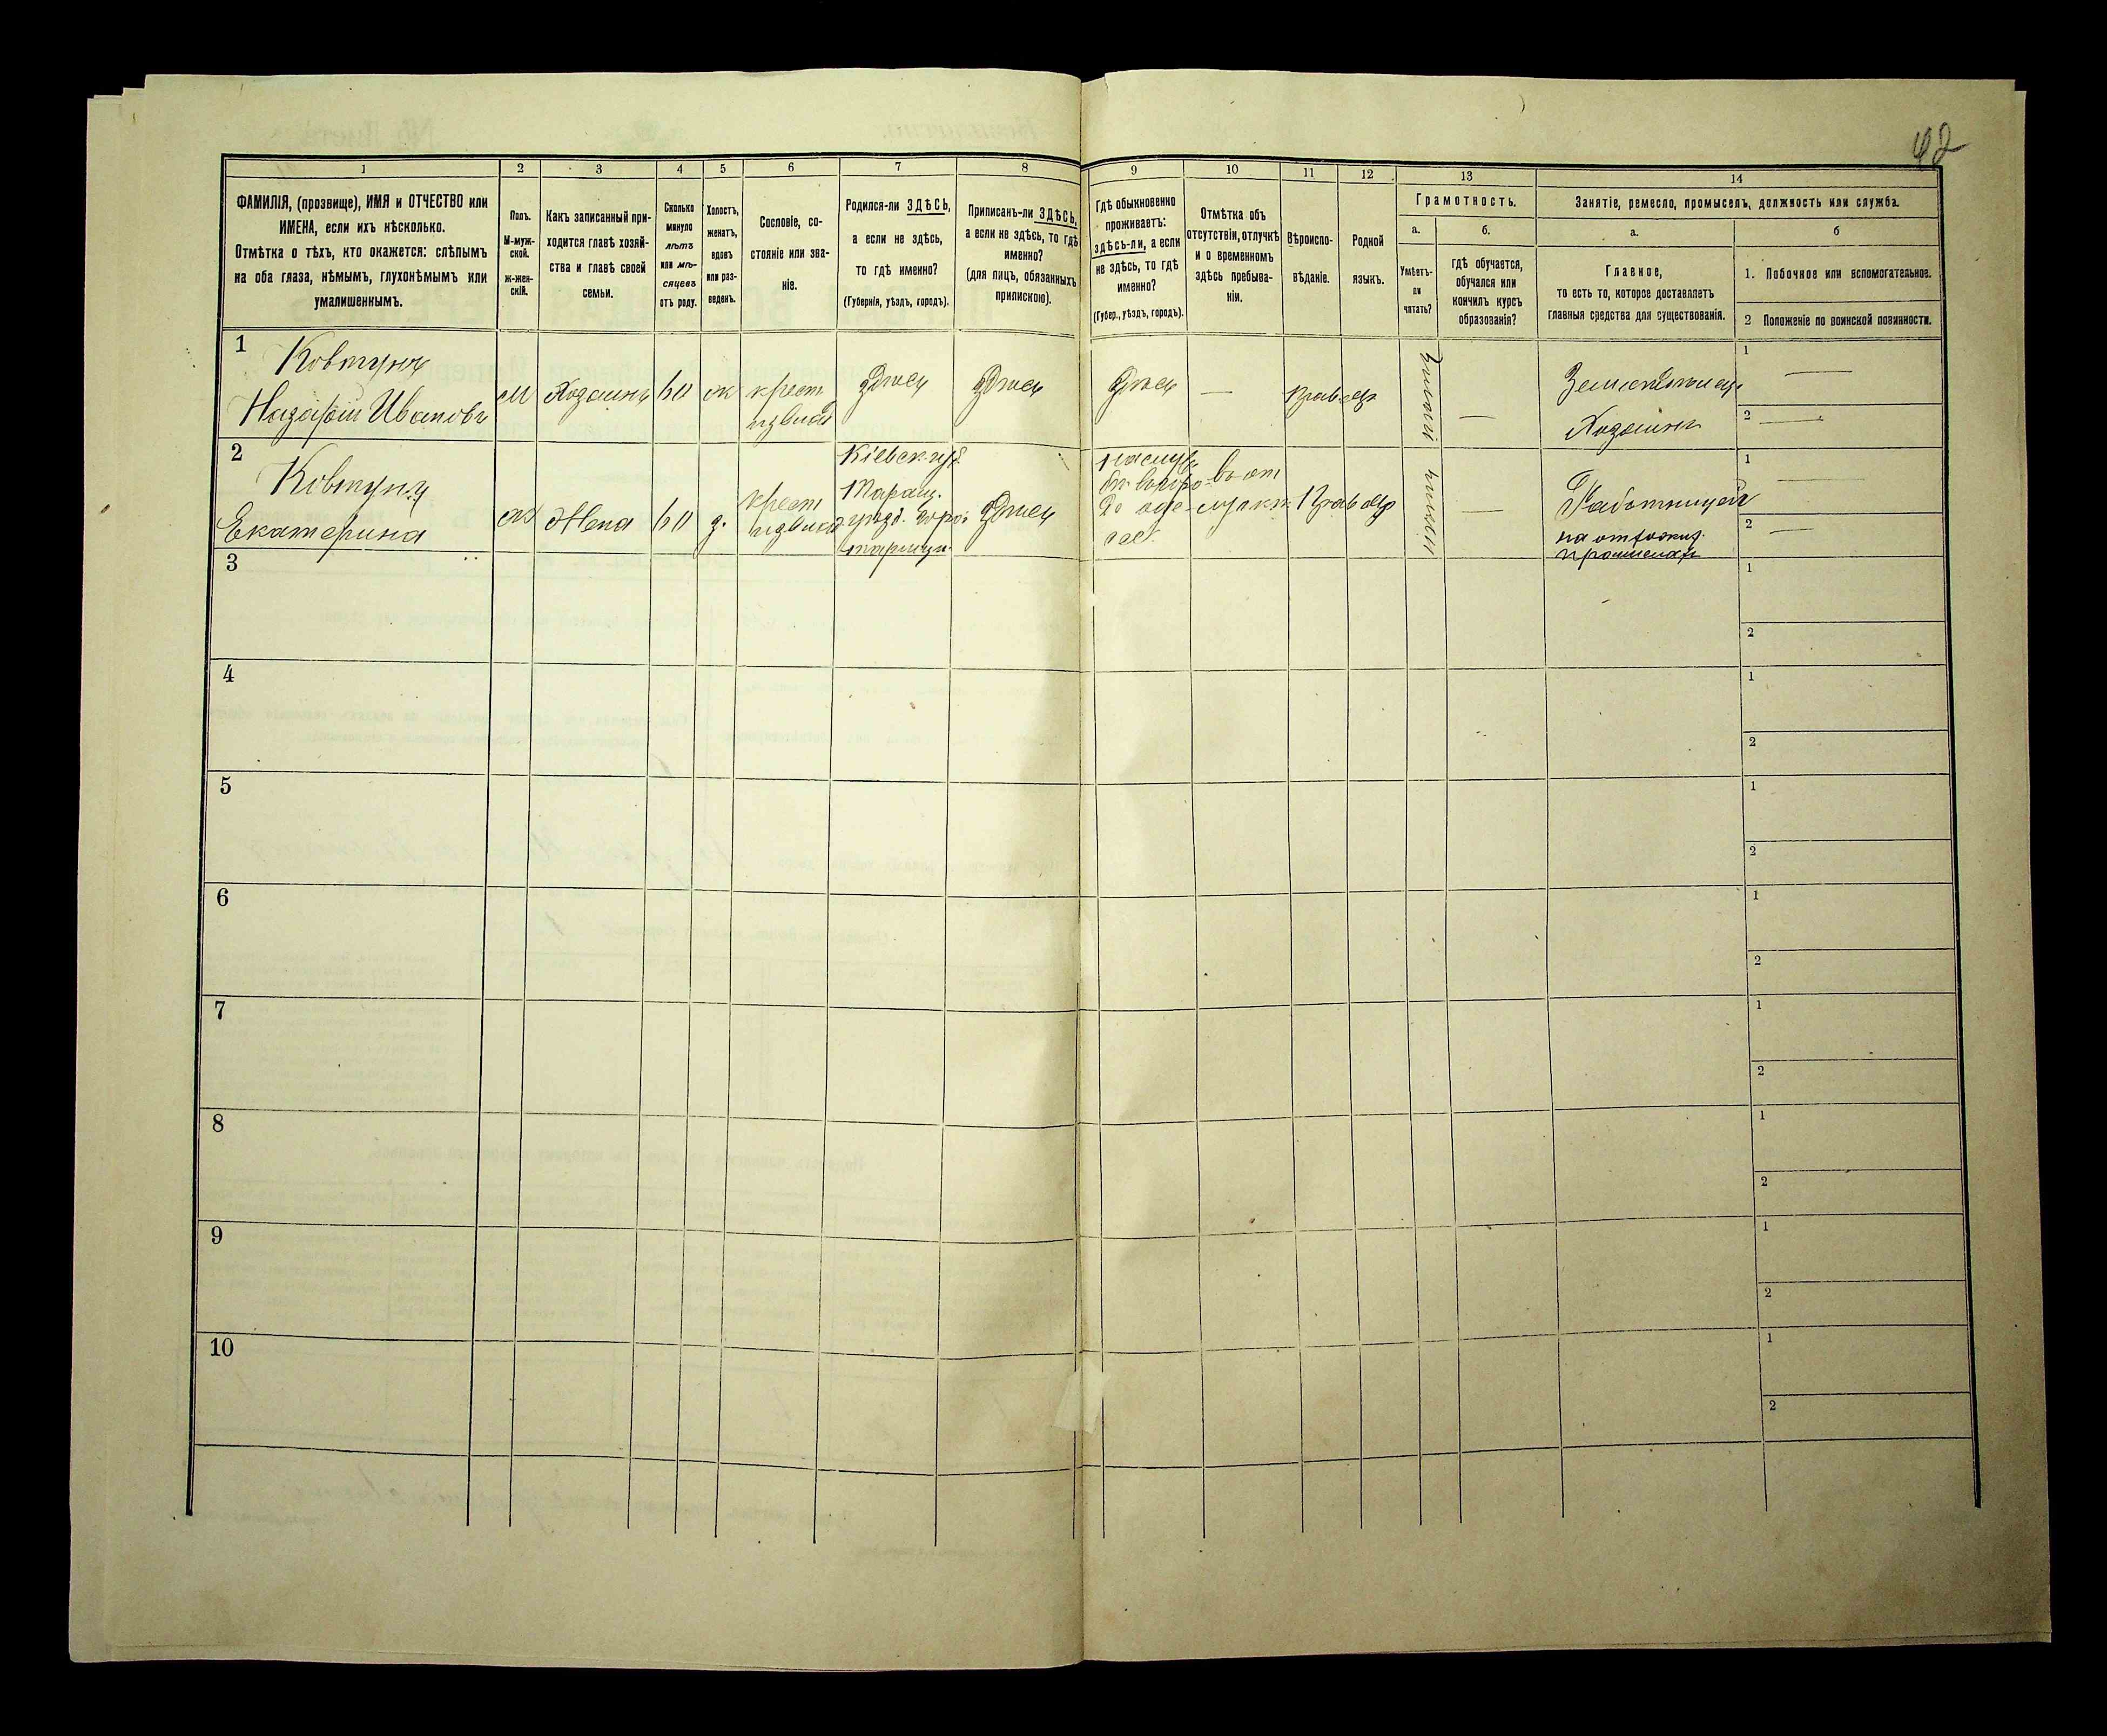 42
1
2
3
4
5
6
7
8
9
10
11
12
13
14
ФАМИЛІЯ, (прозвище), ИМЯ и ОТЧЕСТВО или
ИМЕНА, если ихъ нѣсколько.
Отмѣтка о тѣхъ, кто окажется: слѣпымъ
на оба глаза, нѣмымъ, глухонѣмымъ или
умалишеннымъ.
Полъ.
М-муж-
ской.
ж-жен-
скій.
Какъ записанный при-
ходится главѣ хозяй-
ства и главѣ своей
семьи.
Сколько
минуло
лѣтъ
или мѣ-
сяцевъ
отъ роду.
Холостъ,
женатъ,
вдовъ
или раз-
веденъ.
Сословіе, со-
стояніе или зва-
ніе.
Родился-ли ЗДѢСЬ,
а если не здѣсь,
то гдѣ именно?
(Губернія, уѣздъ, городъ).
Приписанъ-ли ЗДѢСЬ,
а если не здѣсь, то гдѣ
именно?
(для лицъ, обязанныхъ
припискою).
Гдѣ обыкновенно
проживаетъ:
здѣсь-ли, а если
не здѣсь, то гдѣ
именно?
(Губер., уѣздъ, городъ).
Отмѣтка объ
отсутствіи, отлучкѣ
и о временномъ
здѣсь пребыва-
ніи.
Вѣроиспо-
вѣданіе.
Родной
языкъ.
Грамотность.
а.
Умѣетъ-
ли
читать?
б.
гдѣ обучается,
обучался или
кончилъ курсъ
образованія?
Занятіе, ремесло, промыселъ, должность или служба.
а.
Главное,
то есть то, которое доставляетъ
главныя средства для существованія.
б
1. Побочное или вспомогательное.
2 Положеніе по воинской повинности.
1
Ковтунъ
Назарій Ивановъ
м
Хозяинъ
60
ж
крест
здѣсь
здѣсь
здѣсь
—
Прав
Земледѣлецъ
Хозяинъ
1
2
2
Ковтунъ
Екатерина
ж
Жена
60
з.
крест
Кіевск. губ.
Таращ.
здѣсь
Прав
Работницей
1
2
3
1
2
4
1
2
5
1
2
6
1
2
7
1
2
8
1
2
9
1
2
10
1
2